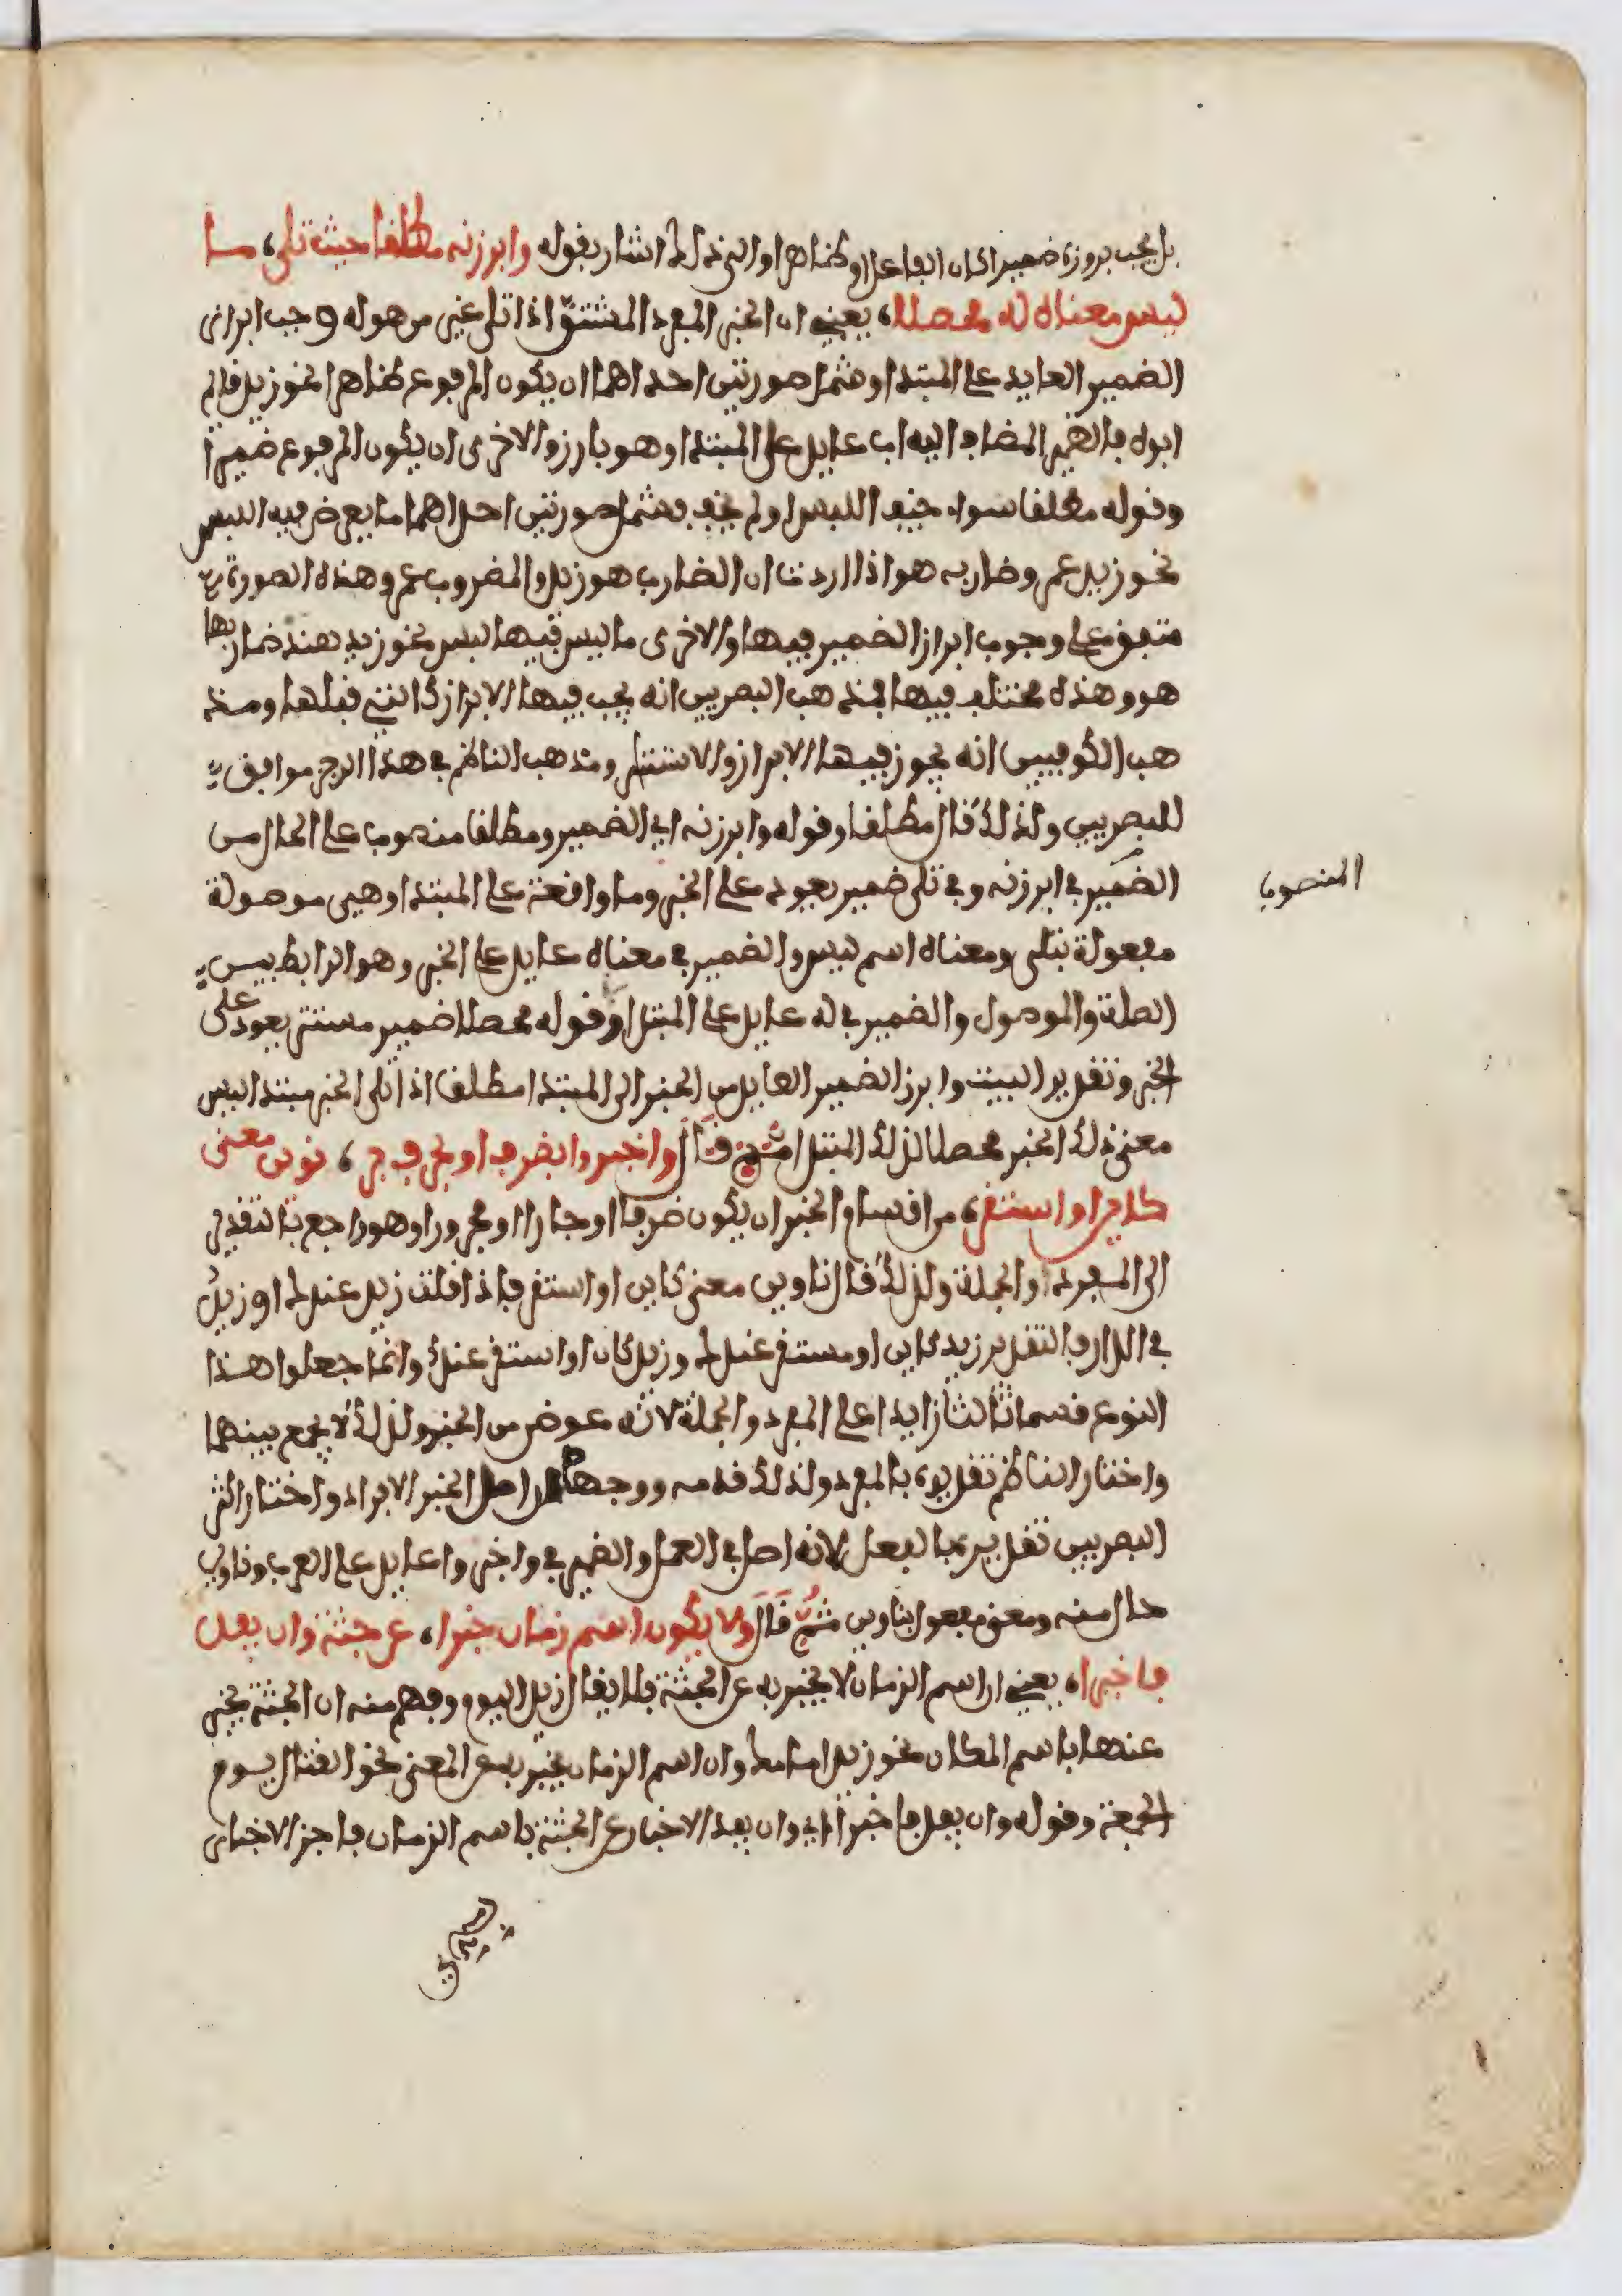 بل يجب بروزه ضميرا كان الفاعل او ظاهرا والى ذلك اشار بقوله وابرزنه مطلقا حيث تلى، مـا
ليس معناه له محصلا، يعني ان الخبر المفرد المشتق اذا تلى غير من هو له وجب ابراز
الضمير العايد على المبتدا وشمل صورتين احداهما ان يكون المرفوع ظاهرا نحو زيد قايم
ابوه فالضمير المضاف اليه اب عايد على المبتدا وهو بارز والاخرى ان يكون المرفوع ضميرا
وقوله مطلقا سواء خيف اللبس او لم يخف فشمل صورتين احداهما ما يعرض فيه اللبس
نحو زيد عمرو ضاربه هو اذا اردت ان الضارب هو زيد والمضروب عمرو وهذه الصورة
متفق على وجوب ابراز الضمير فيها والاخرى ما ليس فيها لبس نحو زيد هند ضاربها
هو وهذه مختلف فيها فمذهب البصريين انه يجب فيها الابراز كالتي قبلها ومذ
هب الكوفيين انه يجوز فيها الابراز والاستتار ومذهب الناظم في هذا الرجز موافق
للبصريين ولذلك قال مطلقا وقوله وابرزنه اي الضمير ومطلقا منصوب على الحال من
الضمير في ابرزنه وفي تلى ضمير يعود على الخبر وما واقعة على المبتدا وهي موصولة
المنصوب
مفعولة بتلى ومعناه اسم ليس والضمير في معناه عايد على الخبر وهو الرابط بيـن
الصلة والموصول والضمير في له عايد على المبتدا وقوله محصلا ضمير مستتر يعود على
الخبر وتقدير البيت وابرز الضمير العايد من الخبر الى المبتدا مطلقا اذا تلى الخبر مبتدا ليس
معنى ذلك الخبر محصلا لذلك المبتدا ثم قال واخبروا بظرف او بحرف جر، نوين معنى
كاين او استقر، من اقسام الخبر ان يكون ضرفا او جارا او مجرورا وهو راجع بالتقدير
الى المفرد او الجملة ولذلك قال ناوين معنى كاين او استقر فاذا قلت زيد عندك او زيد
في الدار فالتقدير زيد كاين او مستقر عندك وزيد كان او استقر عندك وانما جعلوا هذا
النوع قسما ثالثا زايدا على المفرد والجملة لانه عوض من الخبر ولذلك لا يجمع بينهما
واختار الناظم تقديره بالمفرد ولذلك قدمه ووجهه ان اصل الخبر الافراد واختار اكثر
البصريين تقديره بالفعل لانه اصل في العمل والضمير في واخبروا عايد على العرب وناوين
حال منه ومعنى مفعول بناوين ثم قال ولا يكون اسم زمان خبرا، عن جثة وان يفد
فاخبرا، يعني ان اسم الزمان لا يخبر به عن الجثة فلا يقال زيد اليوم وفهم منه ان الجثة يخبر
عنها باسم المكان نحو زيد امامك وان اسم الزمان يخبر به عن المعنى نحو القتال يـوم
الجمعة وقوله وان يفد فاخبرا اي وان يفد الاخبار عن الجثة باسم الزمان فاجز الاخبار